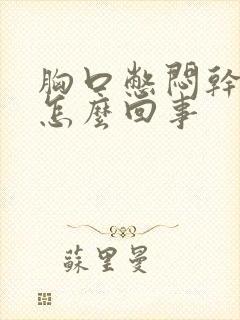 胸口憋悶幹
怎麼回事
蘇里曼